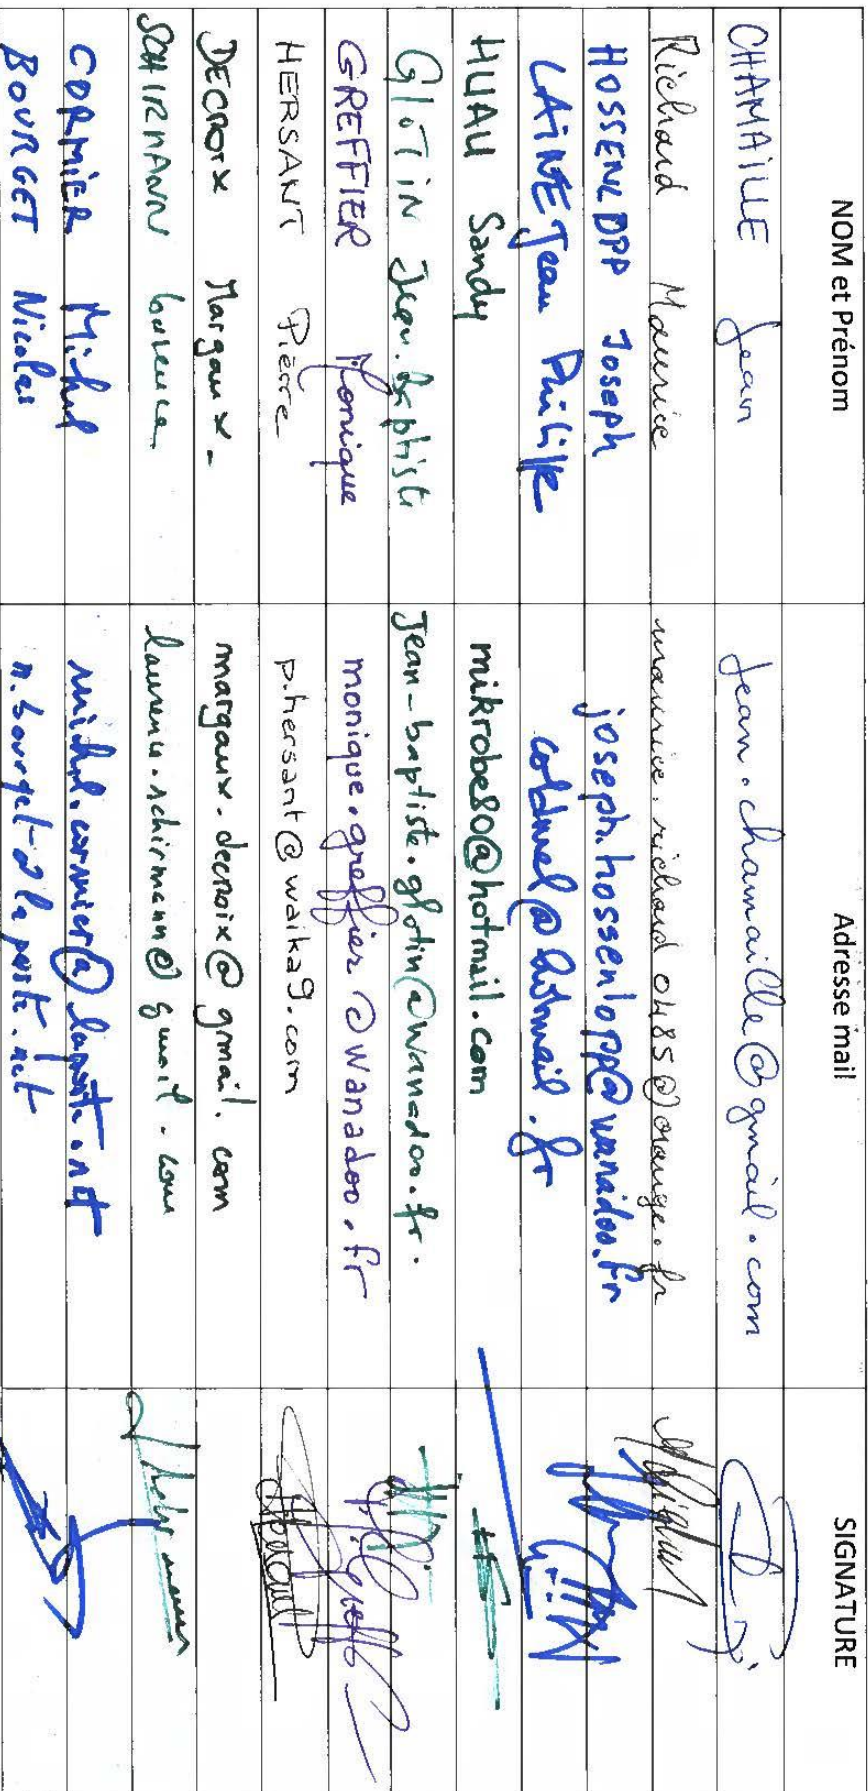 NOM et Prénom Adresse mail SIGNATURE
CHAMAILLE Jean jean.chamaille@gmail.com
Richard Maurice maurice.richard0485@orange.fr
HOSSENLOPP Joseph joseph.hossenlopp@wanadoo.fr
LAINE Jean Philippe coldwel@hotmail.fr
HUAU Sandy mikrobe80@hotmail.com
GLOTIN Jean-Baptiste Jean-baptiste.glotin@wanadoo.fr.
GREFFIER Monique monique.greffier@wanadoo.fr
HERSANT Pierre p.hersant@waika9.com
DECROIX Margaux - margaux.decroix@gmail.com
SCHIRMANN Laurence laurence.schirmann@gmail.com
CORMIER Michel michel.cormier@laposte.net
BOURGET Nicolas n.bourget@laposte.net